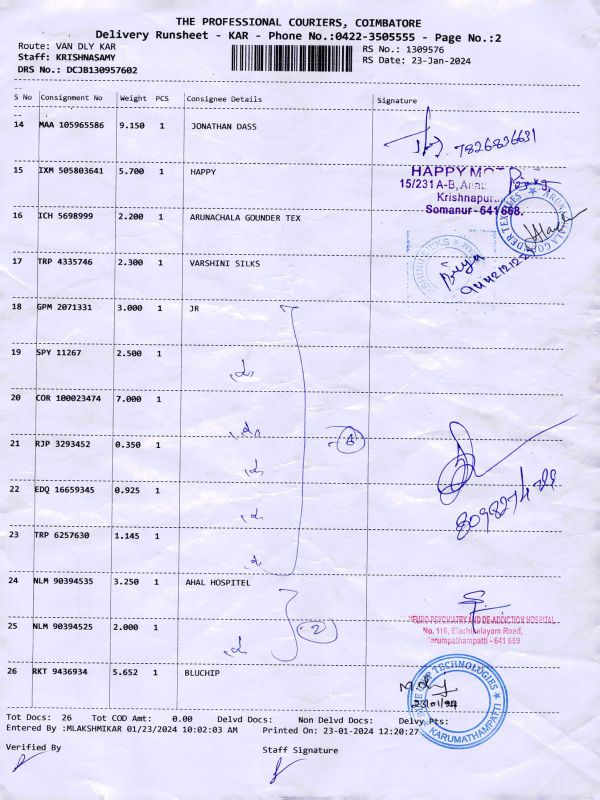 THE PROFESSIONAL COURIERS, COIMBATORE
Delivery Runsheet - KAR - Phone No.:0422-3505555 - Page No.:2
Route: VAN DLY KAR RS No.: 1309576
Staff: KRISHNASAMY RS Date: 23-Jan-2024
DRS No.: DCJB130957602
S No Consignment No Weight PCS Consignee Details Signature
14 MAA 105965586 9.150 1 JONATHAN DASS
7826836631
15 IXM 505803641 5.700 1 HAPPY
HAPPY
15/231 A-B,
Krishnapur
Somanur-641 668.
16 ICH 5698999 2.200 1 ARUNACHALA GOUNDER TEX
17 TRP 4335746 2.300 1 VARSHINI SILKS
Priya
18 GPM 2071331 3.000 1 JR
19 SPY 11267 2.500 1
20 COR 100023474 7.000 1
21 RJP 3293452 0.350 1
22 EDQ 16659345 0.925 1
23 TRP 6257630 1.145 1
24 NLM 90394535 3.250 1 AHAL HOSPITEL
25 NLM 90394525 2.000 1
2
NEURO PSYCHIATRY AND DE-ADDICTION HOSPITAL
No. 116, Elachipalayam Road,
Karumpathampatti - 641 659
26 RKT 9436934 5.652 1 BLUCHIP
TECHNOLOGIES
23/01/24
KARUMATHAMPATTI
Tot Docs: 26 Tot COD Amt: 0.00 Delvd Docs: Non Delvd Docs: Delvy Pts:
Entered By :MLAKSHMIKAR 01/23/2024 10:02:03 AM Printed On: 23-01-2024 12:20:27
Verified By Staff Signature